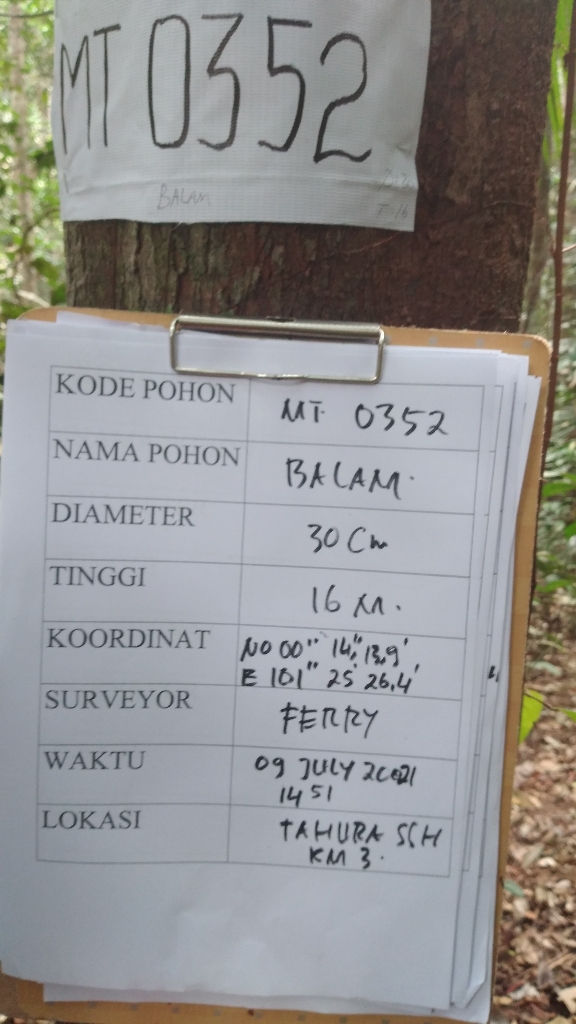 MT 0352
BALAM
T=16
KODE POHON MT 0352
NAMA POHON BALAM.
DIAMETER 30 Cm
TINGGI 16 m.
KOORDINAT NO 00" 14," 13,9'
E 101" 25' 26,4'
SURVEYOR FERRY
WAKTU 09 JULY 2021
14 51
LOKASI TAHURA SSH
KM 3.